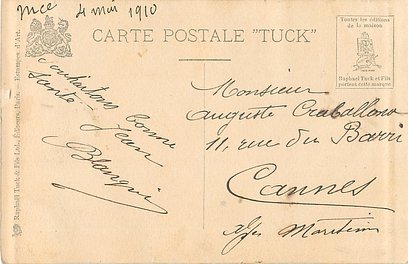 nice 4 mai 1910
CARTE POSTALE "TUCK"
Toutes les éditions
de la maison
Raphael Tuck et Fils
portent cette marque
Souhaitons bonne
Santé
Jean
Blanqui
Monsieur
Auguste Craballona
11, rue du Barri
Cannes
Alpes Maritimes
Raphael Tuck & Fils Ltd., Éditeurs, Paris.